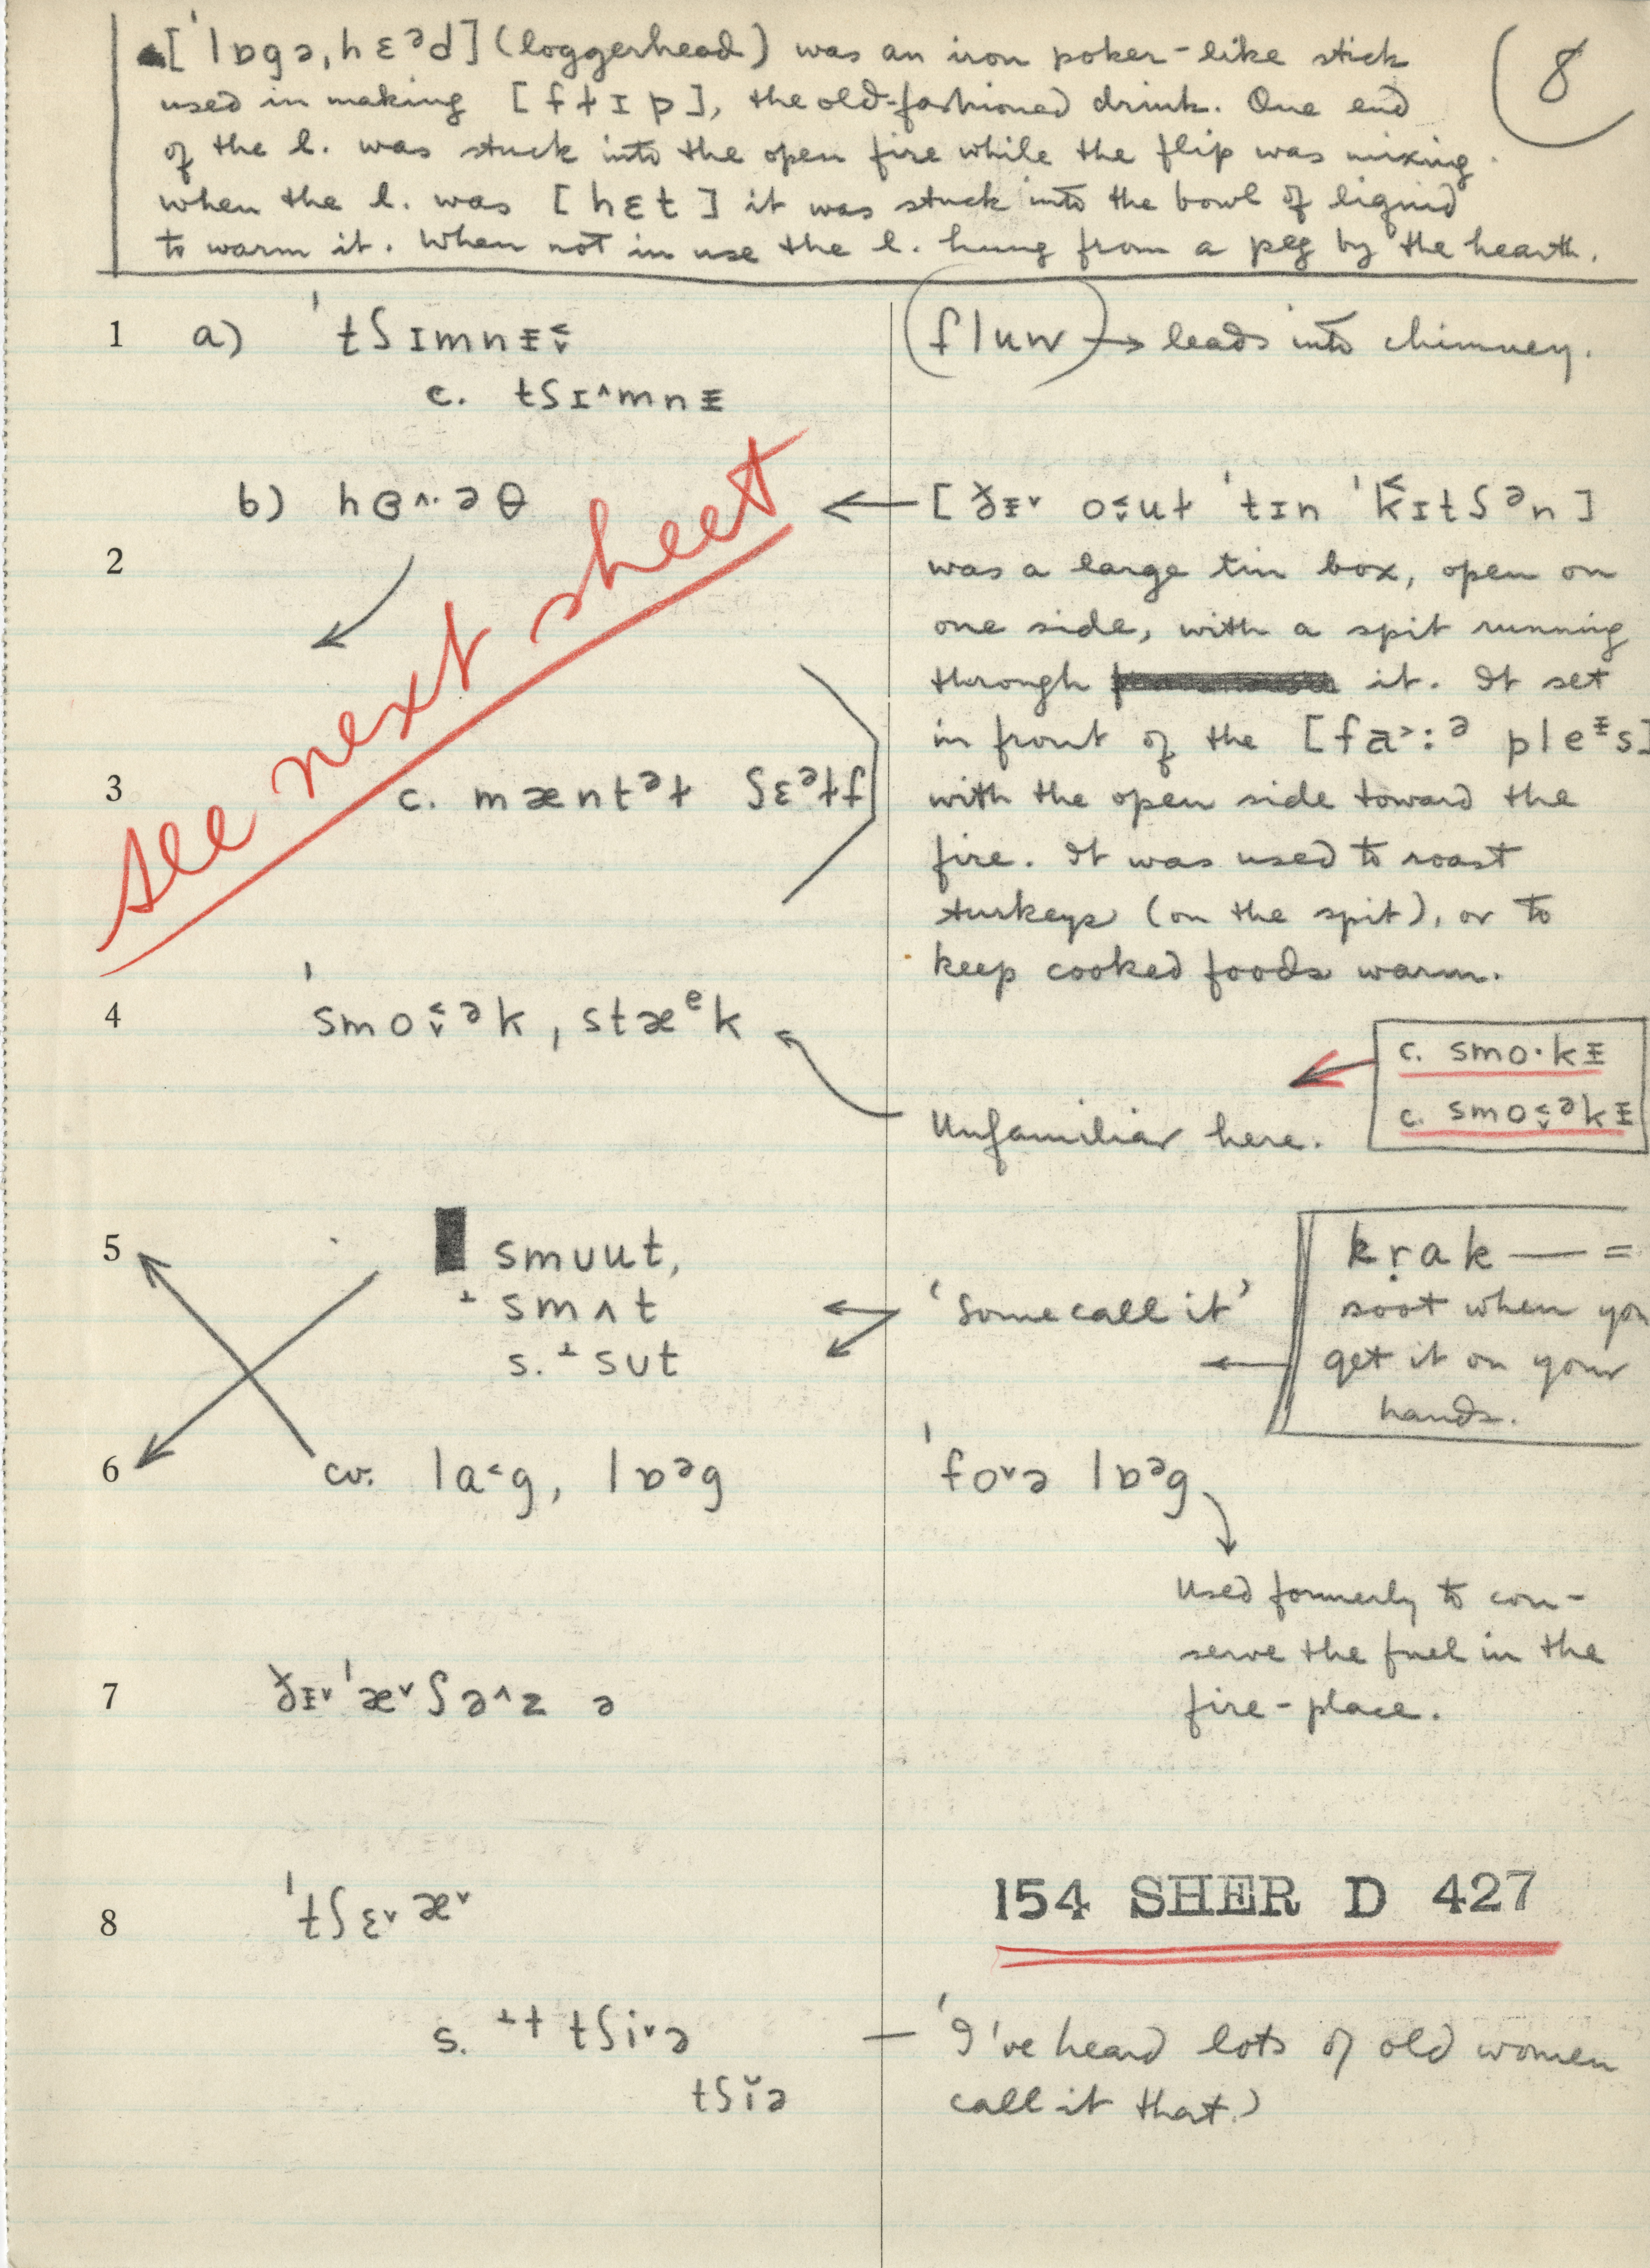 [ˈlɒgəˌhɛᵊd] (loggerhead) was an iron poker-like stick
used in making [fɫɪp], the old-fashioned drink. One end
of the l. was stuck into the open fire while the flip was mixing.
when the l. was [hɛt] it was stuck into the bowl of liquid
to warm it. When not in use the l. hung from a peg by the hearth.
8
1 a) ˈtʃɪmnɪ̵˂˅
(fluw) → leads into chimney.
c. tʃɪ^mnɪ̵
b) hɞ^·əθ
← [ɣ̌ɪ̵˅ o˂˅uɫ ˈtɪn ˈk̬ɪtʃᵊn]
2
was a large tin box, open on
one side, with a spit running
through it. It set
in front of the [fa˃:ᵊ pleᶤs]
See next sheet
3 c. mæntᵊɫ ʃɛᵊɫf
with the open side toward the
fire. It was used to roast
turkeys (on the spit), or to
keep cooked foods warm.
4 ˈsmo˂˅ᵊk, stæᵉk
c. smo·kɪ̵
c. smo˂˅ᵊkɪ̵
Unfamiliar here.
5 smuut,
⊥ smʌt
s. ⊥ sut
'Some call it'
krak — =
soot when you
get it on your
hands.
6 cv. la˂g, lɒᵊg
ˈfo˅ə lɒᵊg
Used formerly to con-
serve the fuel in the
fire-place.
7 ɣ̌ɪ̵˅ ˈæ˅ʃə^z ə
8 ˈtʃɛ˅æ˅
154 SHER D 427
s. ⊥† tʃi˅ə
tʃĭə
— 'I've heard lots of old women
call it that.'